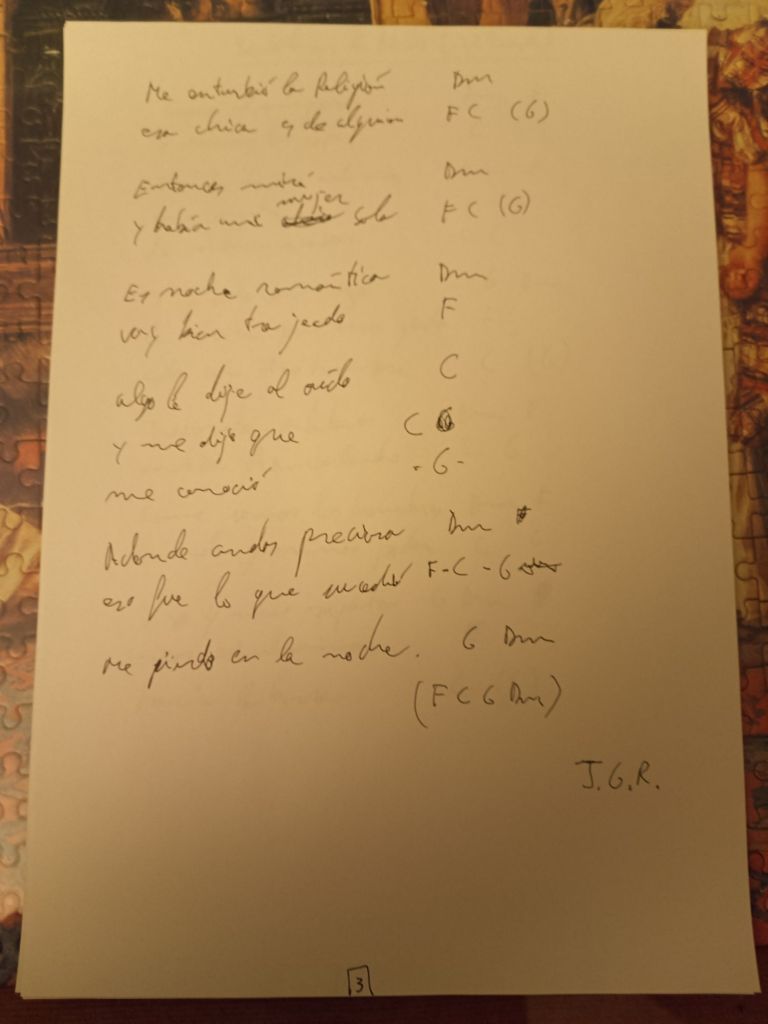 Me enturbió la Religión Dm
esa chica es de alguien F C (G)
Entonces miré Dm
y había una mujer sola F C (G)
Es noche romántica Dm
voy bien trajeado F
algo le dije al oído C
y me dijo que C
me conoció - G -
Adonde andas preciosa Dm
eso fue lo que sucedió F - C - G
Me pierdo en la noche. G Dm
(F C G Dm)
J.G.R.
3